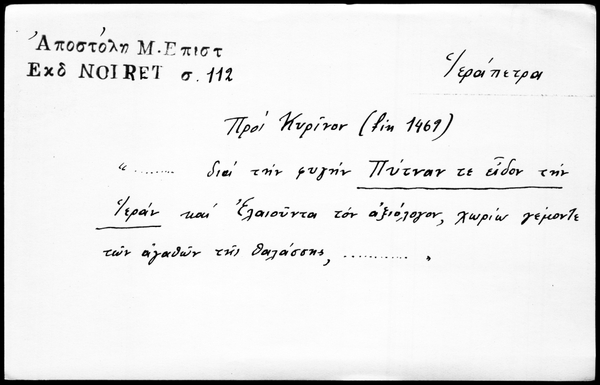 Ἀποστόλη Μ. Επιστ
Εκδ NOIRET σ. 112
Ἱεράπετρα
Πρὸς Κυρῖνον (fin 1469)
" ........ διὰ τὴν φυγὴν Πύτναν τε εἶδον τὴν
Ἱερὰν καὶ Ἐλαιοῦντα τὸν ἀξιόλογον, χωρίω γέμοντε
τῶν ἀγαθῶν τῆς θαλάσσης, ........... "